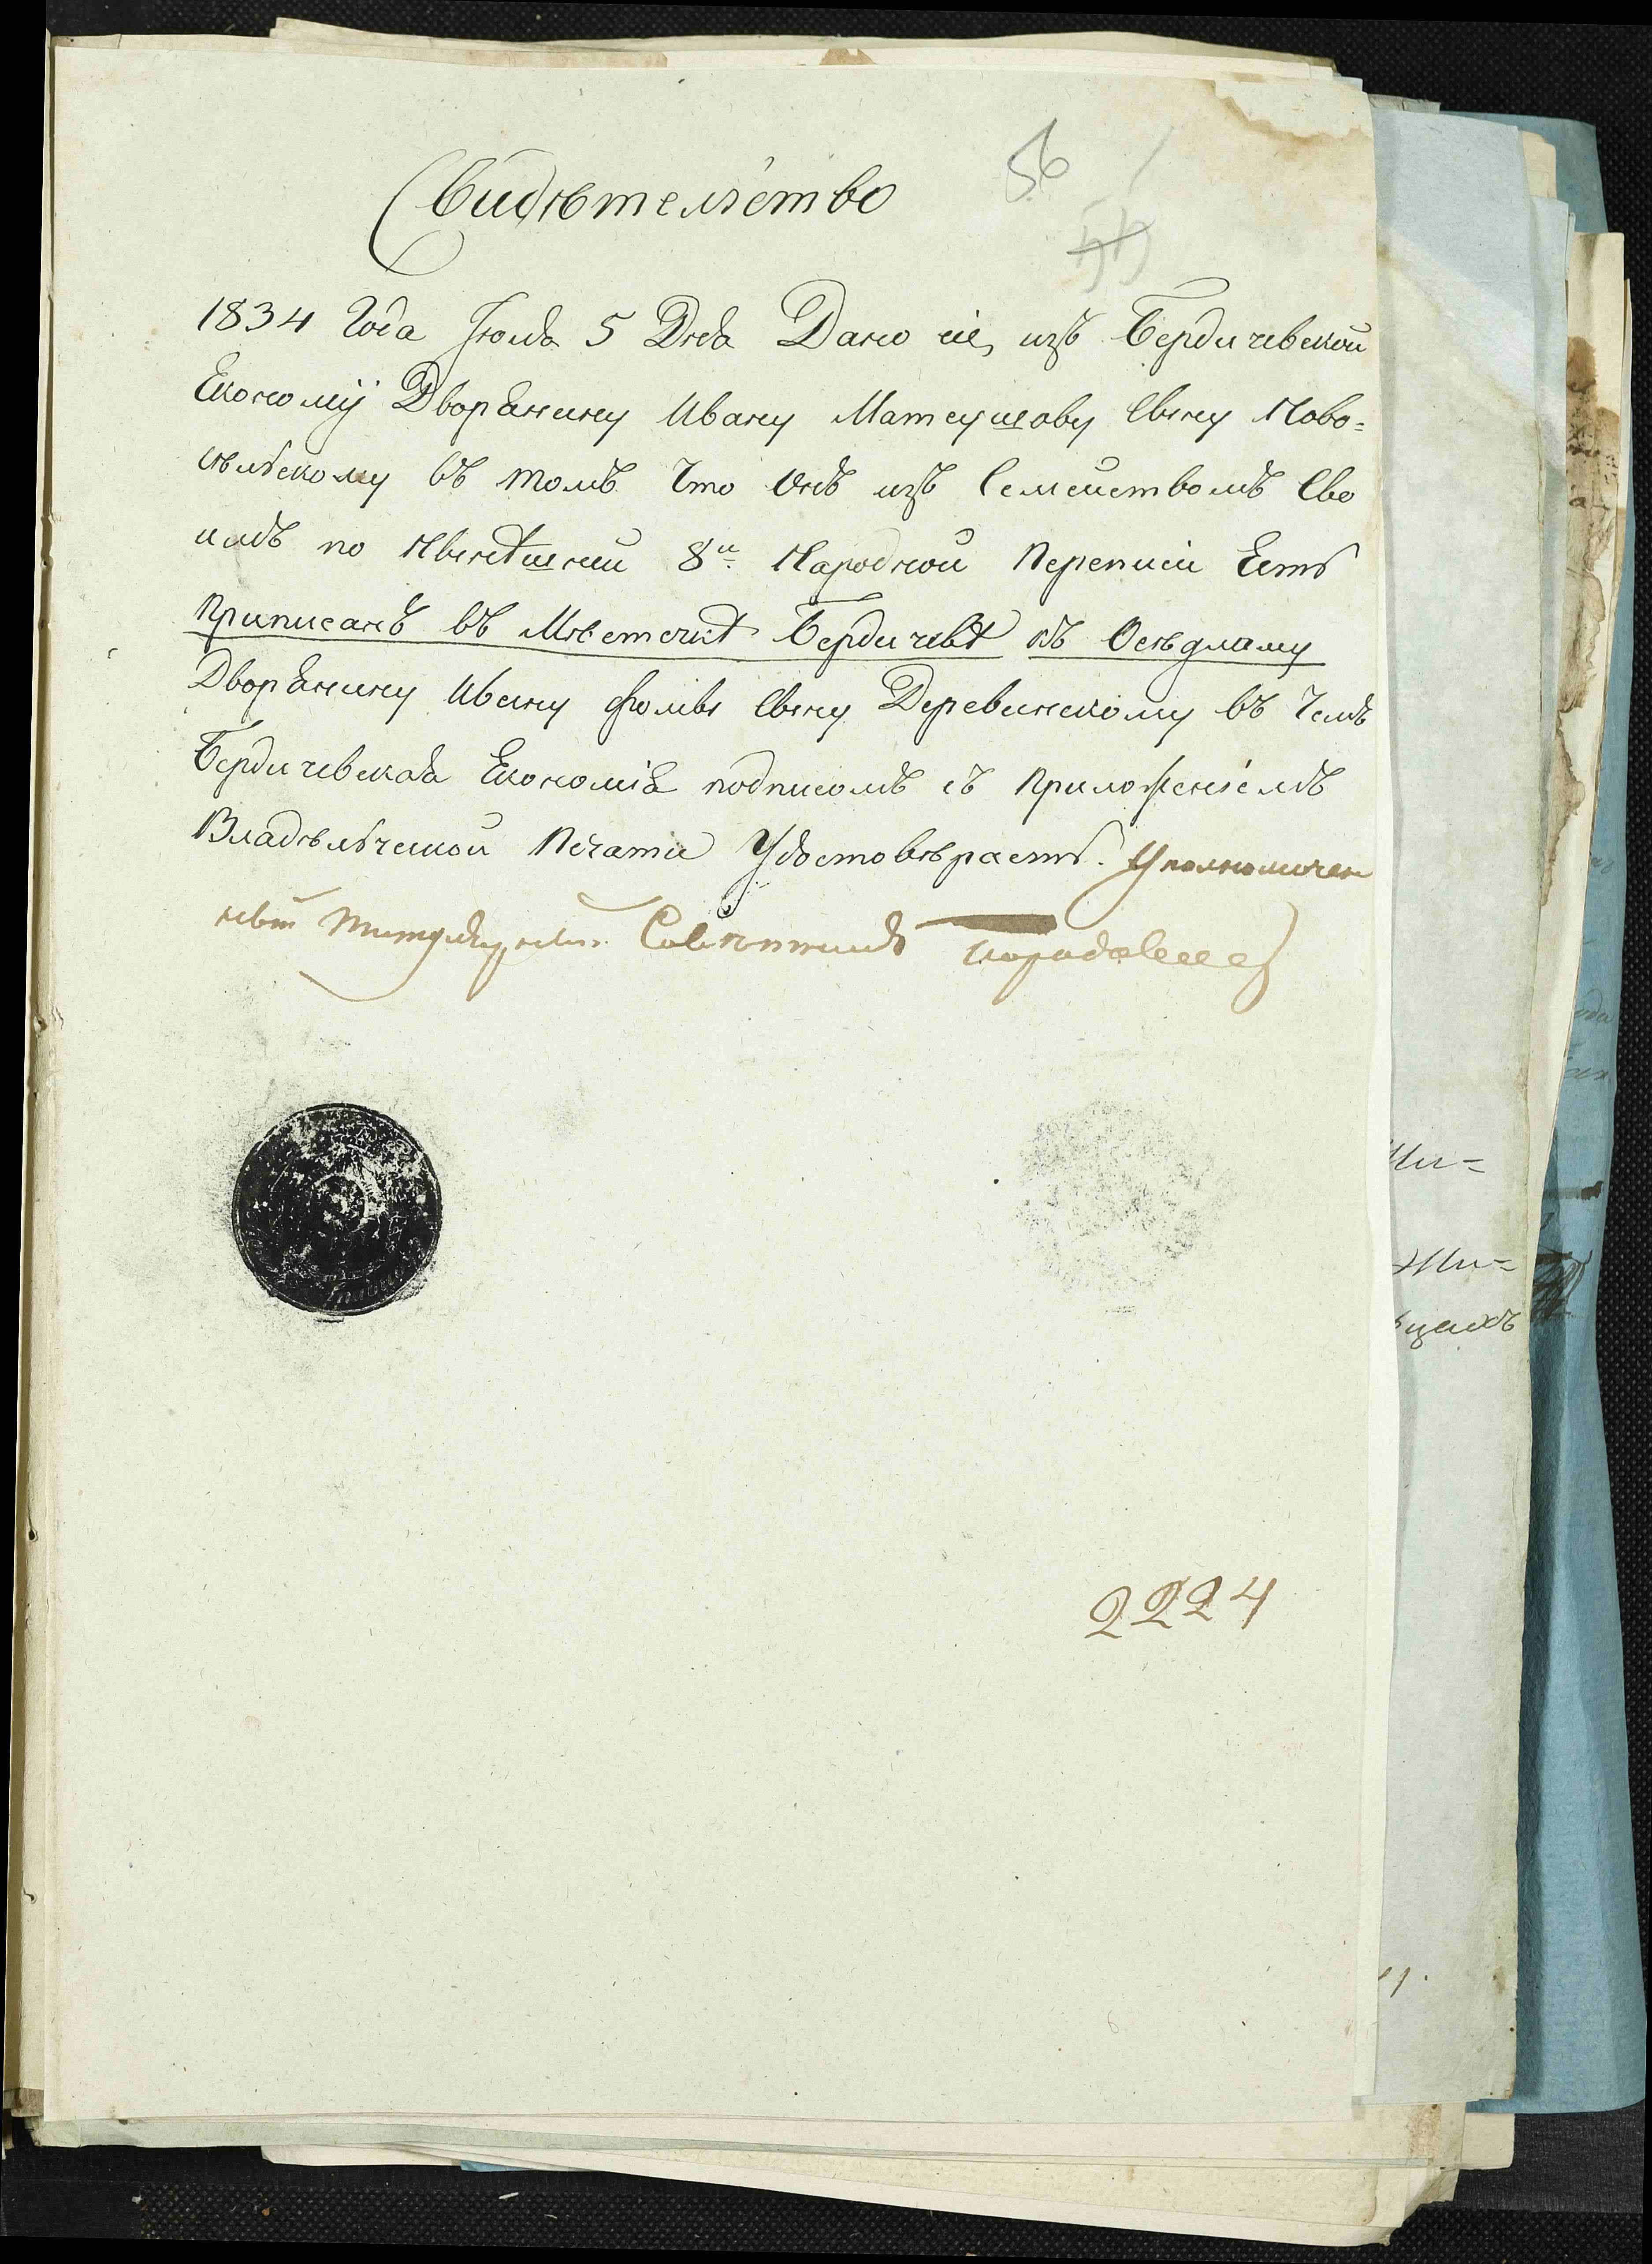 Свидѣтелство
56
1834 Года Іюля 5 Дня Дано сіе, изъ Бердичевской
Економїї Дворянину Ивану Матеушову Сыну Ново=
сѣльскому въ томъ Что Онъ изъ Семействомъ Сво
имъ по Нынѣшней 8й Народной Переписи Есть
Приписанъ въ Мѣстечкѣ Бердичевѣ къ Осѣдлому
Дворянину Ивану Фомы Сыну Деревинскому въ Чемъ
Бердичевская Економія подписомъ съ Приложеніемъ
Владѣльческой Печати Удостовѣраетъ. Уполномочен
ный Титулярный Совѣтникъ
2224
Ми=
Жи=
ѣцахъ